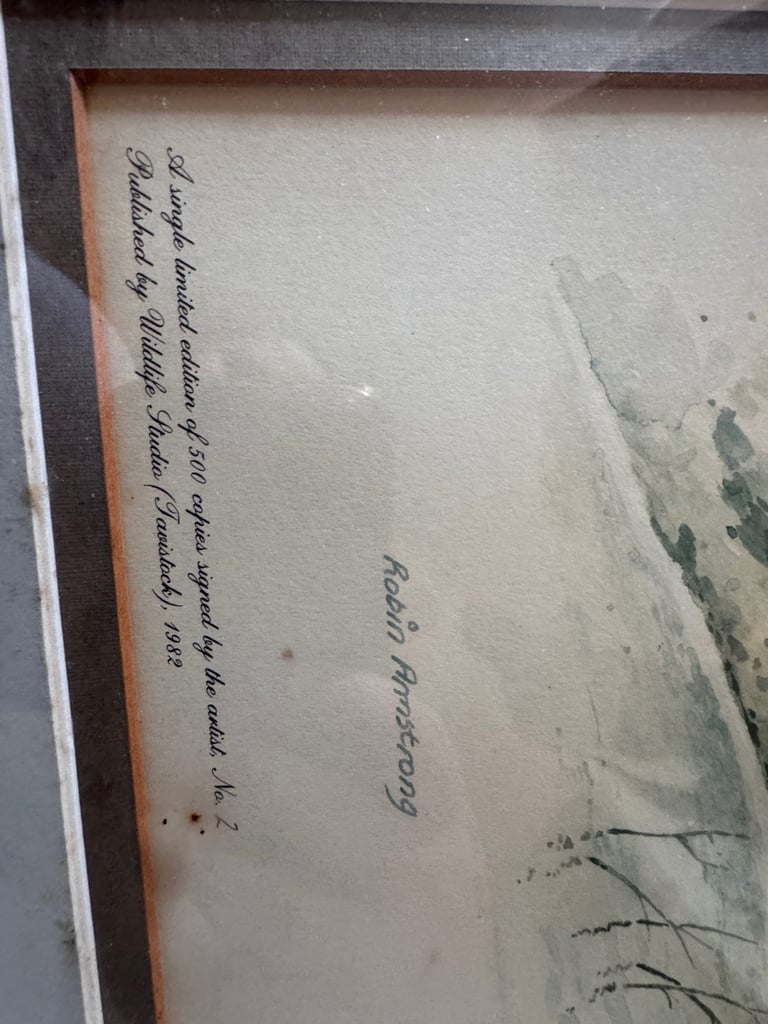 A single limited edition of 500 copies signed by the artist, No. 2
Published by Wildlife Studio (Tavistock), 1982
Robin Armstrong